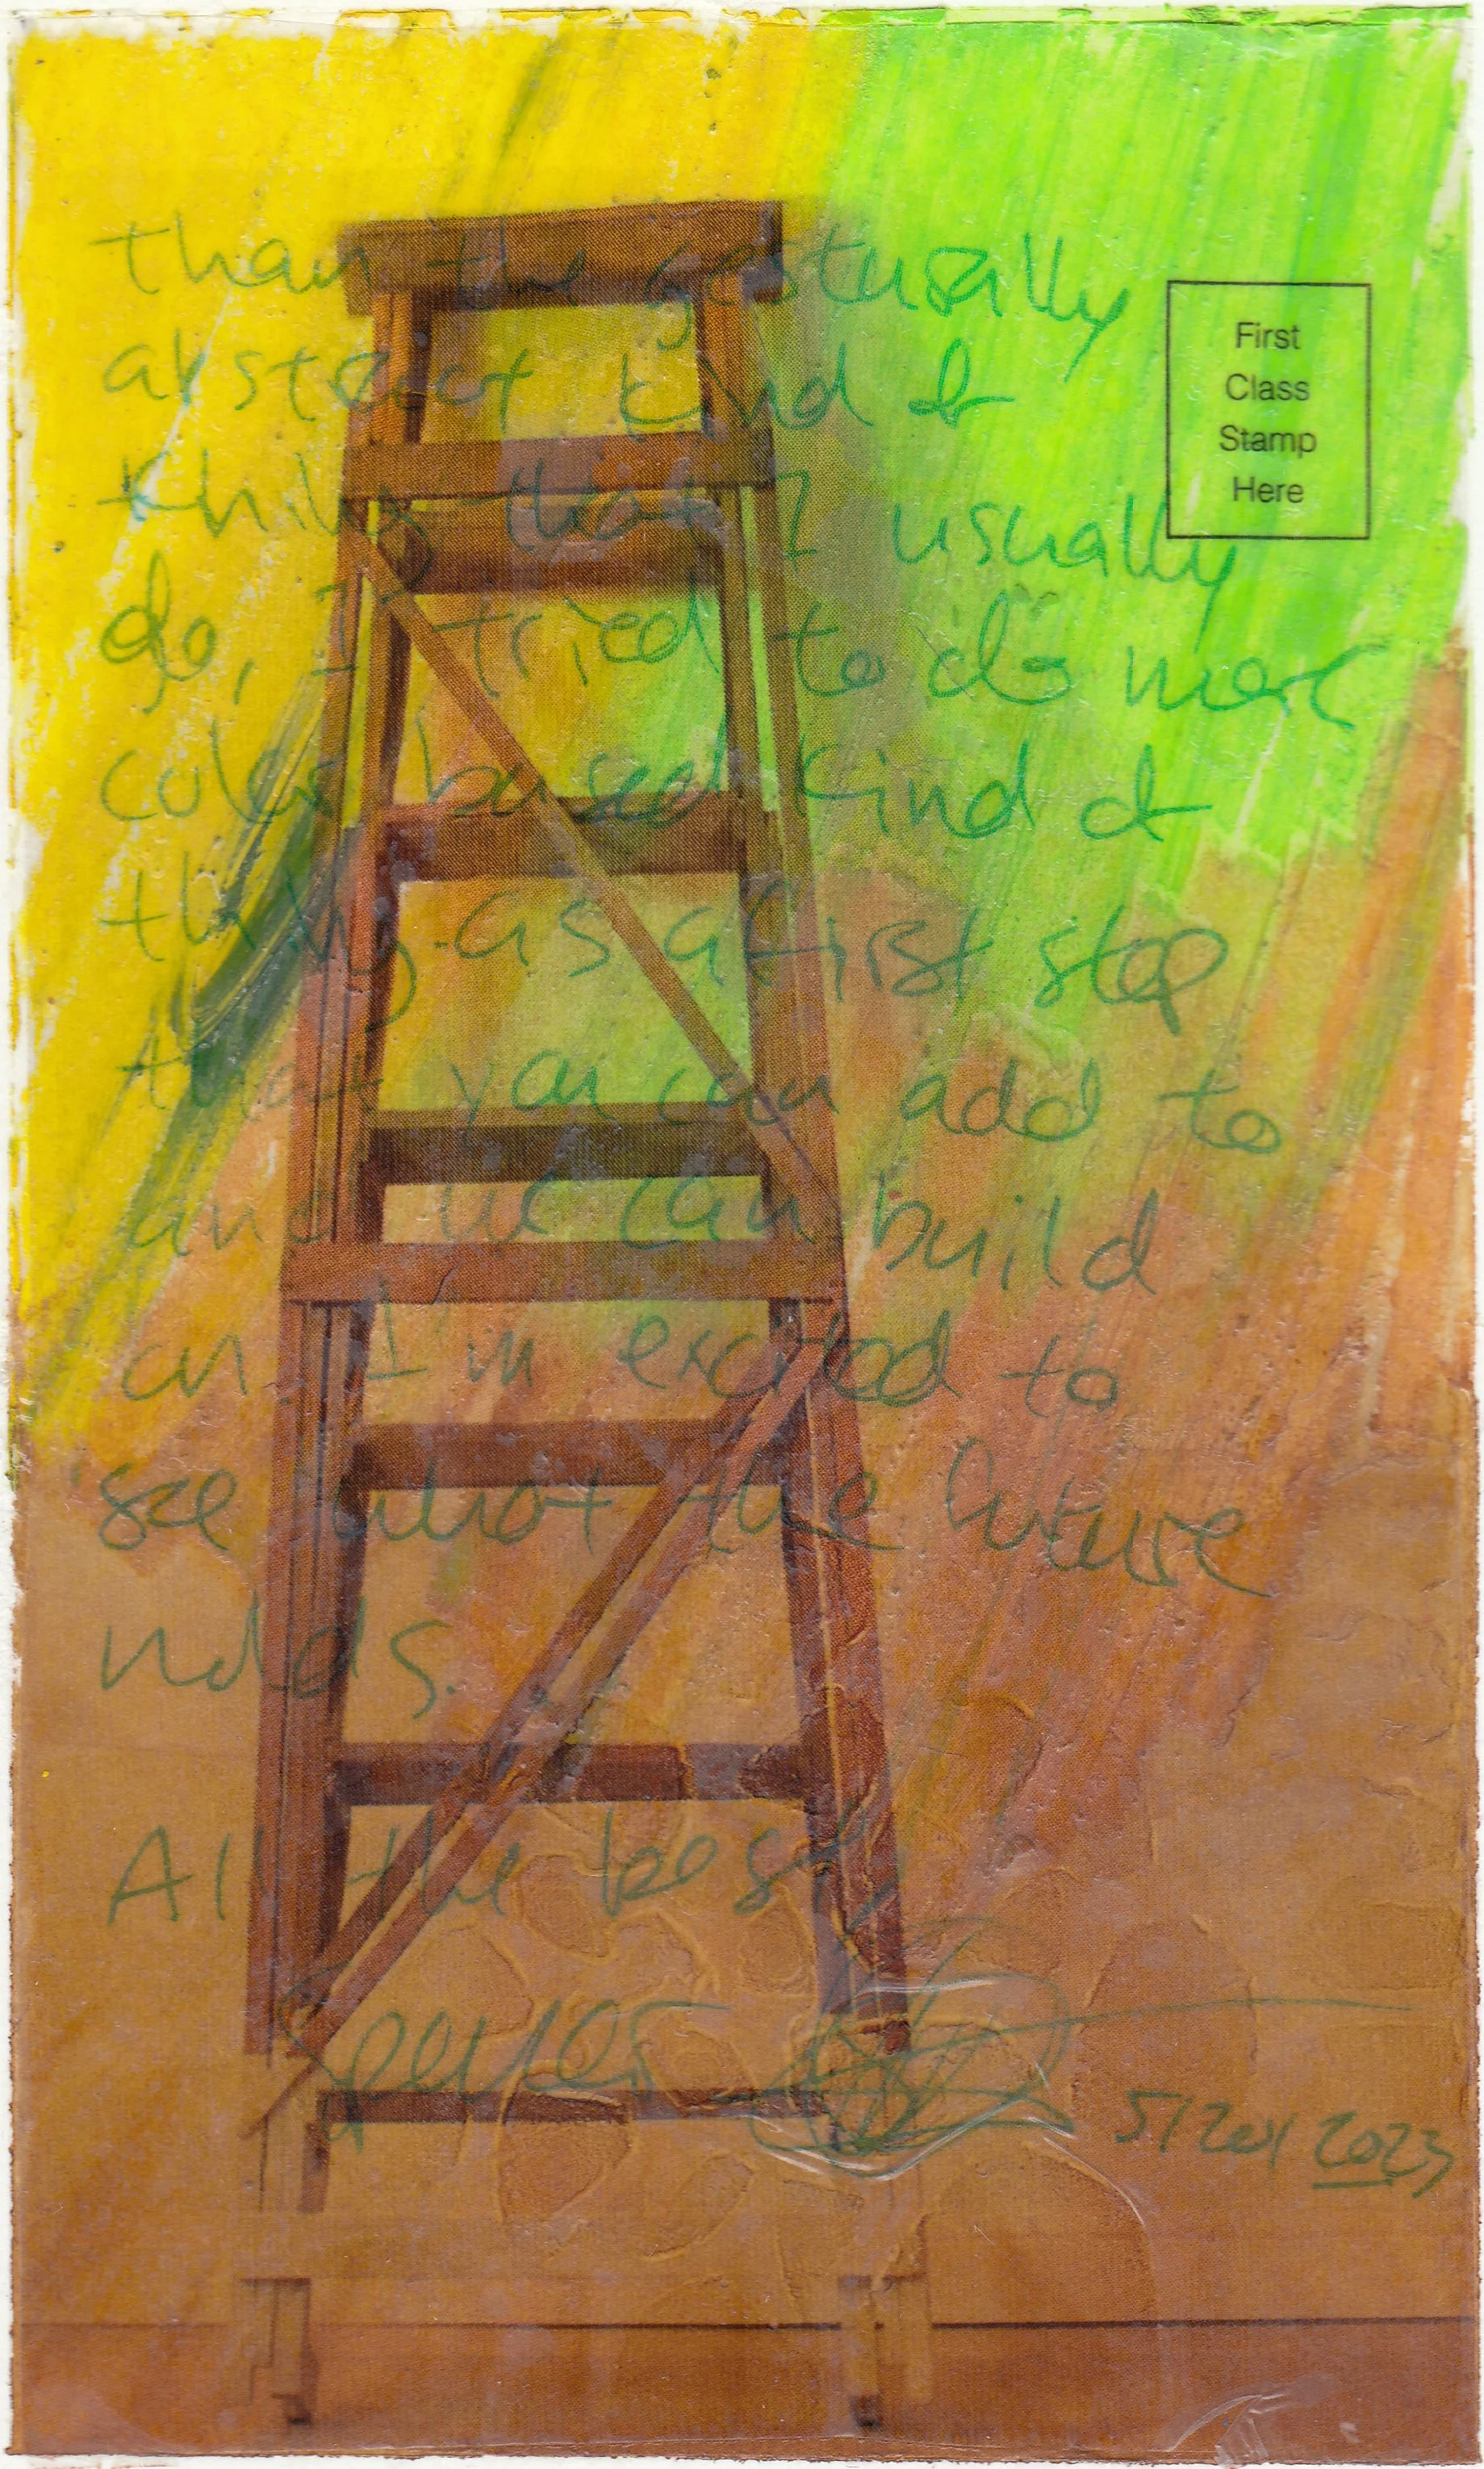 than the gesturally
First
Class
Stamp
Here
abstract kind of
thing that I usually
do, I tried to do more
color based kind of
thing as a first step
that you can add to
and we can build
on. I'm excited to
see what the future
holds.
All the best,
2023